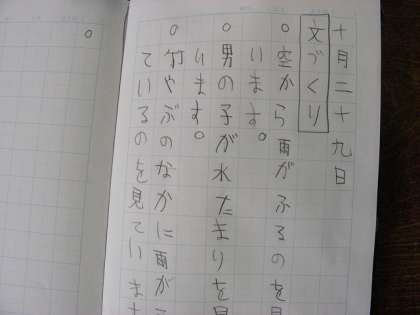 十月二十九日
文づくり
○空から雨がふるのを見
います。
○男の子が水たまりを見
います。
○竹やぶのなかに雨がふ
ているのを見ています
○